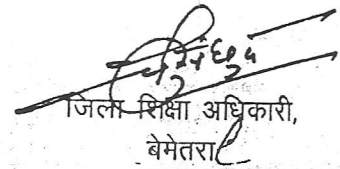 जिला शिक्षा अधिकारी,
बेमेतरा